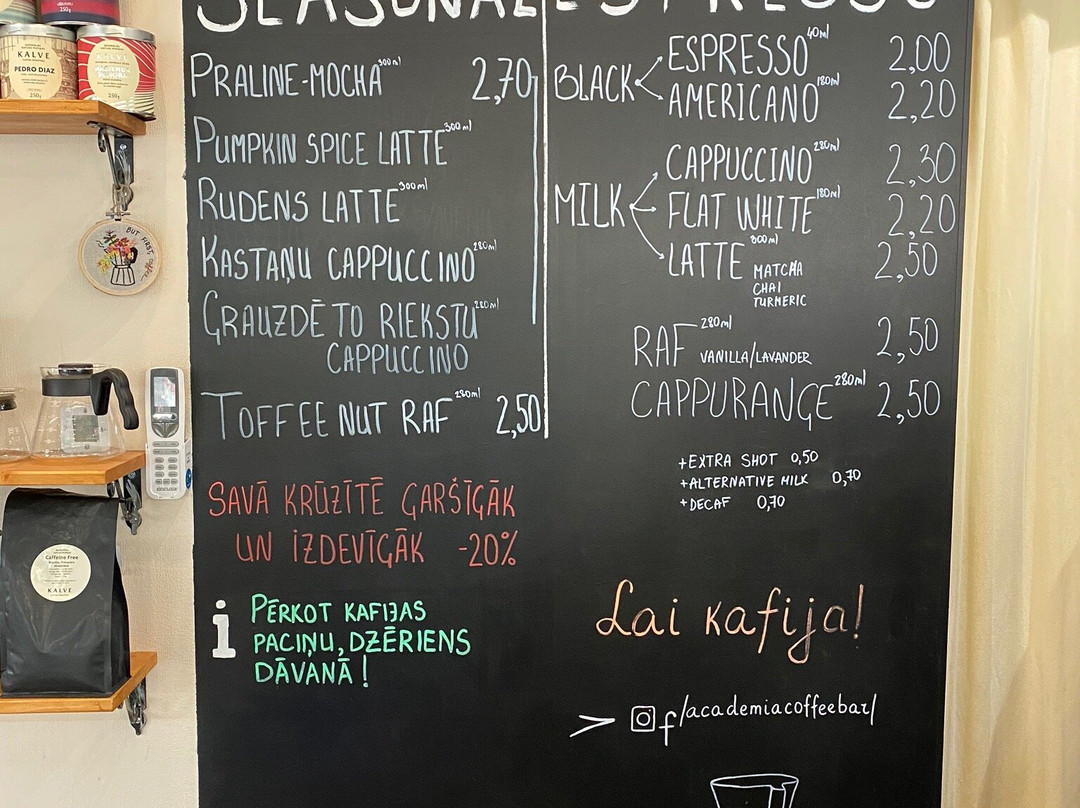 SEASONAL
PRALINE-MOCHA 300ml 2,70
PUMPKIN SPICE LATTE 300ml
RUDENS LATTE 300ml
KASTAŅU CAPPUCCINO 280ml
GRAUZDĒTO RIEKSTU 280ml
CAPPUCCINO
TOFFEE NUT RAF 280ml 2,50
SAVĀ KRŪZĪTĒ GARŠĪGĀK
UN IZDEVĪGĀK -20%
i
PĒRKOT KAFIJAS
PACIŅU, DZĒRIENS
DĀVANĀ!
ESPRESSO
BLACK
ESPRESSO 40ml 2,00
AMERICANO 180ml 2,20
MILK
CAPPUCCINO 280ml 2,30
FLAT WHITE 180ml 2,20
LATTE 300ml 2,50
MATCHA
CHAI
TURMERIC
RAF 280ml VANILLA/LAVANDER 2,50
CAPPURANGE 280ml 2,50
+EXTRA SHOT 0,50
+ALTERNATIVE MILK 0,70
+DECAF 0,70
Lai kafija!
f/academiacoffeebar/
KALVE
PEDRO DIAZ
250g
250g
250g
KALVE
BUT FIRST,
coffee
Caffeine Free
KALVE